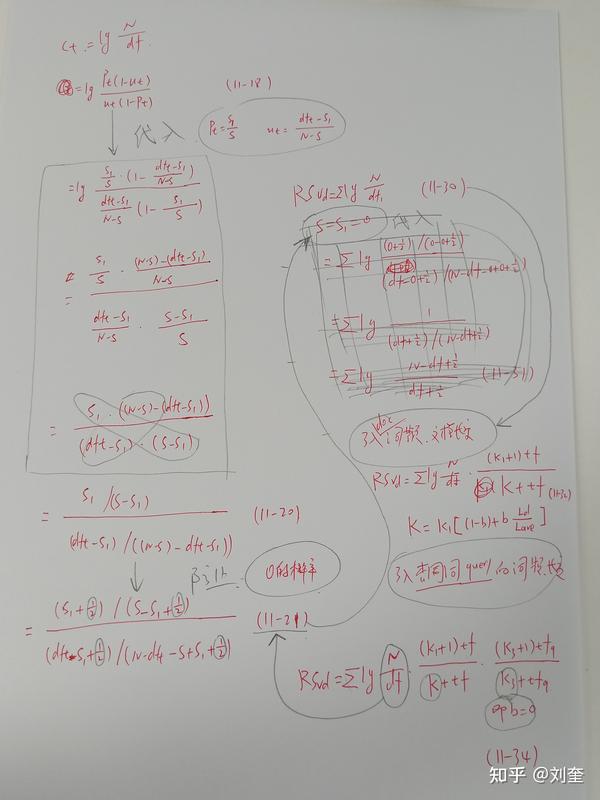 Ct = lg N/df
= lg Pt(1-ut)/ut(1-Pt) (11-18)
代入 Pt = S1/S ut = dft-S1/N-S
= lg S1/S · (1 - dft-S1/N-S) / dft-S1/N-S (1 - S1/S)
= S1/S · (N-S)-(dft-S1)/N-S / dft-S1/N-S · S-S1/S
= S1 · ((N-S)-(dft-S1)) / (dft-S1) · (S-S1)
= S1/(S-S1) / (dft-S1)/((N-S)-dft-S1)) (11-20)
0的概率
= (S1+1/2)/(S-S1+1/2) / (dft-S1+1/2)/(N-dft-S+S1+1/2) (11-21)
RSVd = Σlg N/dft (11-30)
S=S1=0 代入
= Σlg (0+1/2)/(0-0+1/2) / (dft-0+1/2)/(N-dft-0+0+1/2)
= Σlg 1/(dft+1/2)/(N-dft+1/2)
= Σlg N-dft+1/2 / dft+1/2 (11-31)
引入doc词频.文档长度
RSVd = Σlg N/df · (K1+1)tf / K+tf (11-32)
K = K1[(1-b)+b Ld/Lave]
引入查询词query的词频.长度
RSVd = Σlg N/df · (K1+1)tf / K+tf · (K3+1)tfq / K3+tfq
b=0
(11-34)
知乎 @刘奎